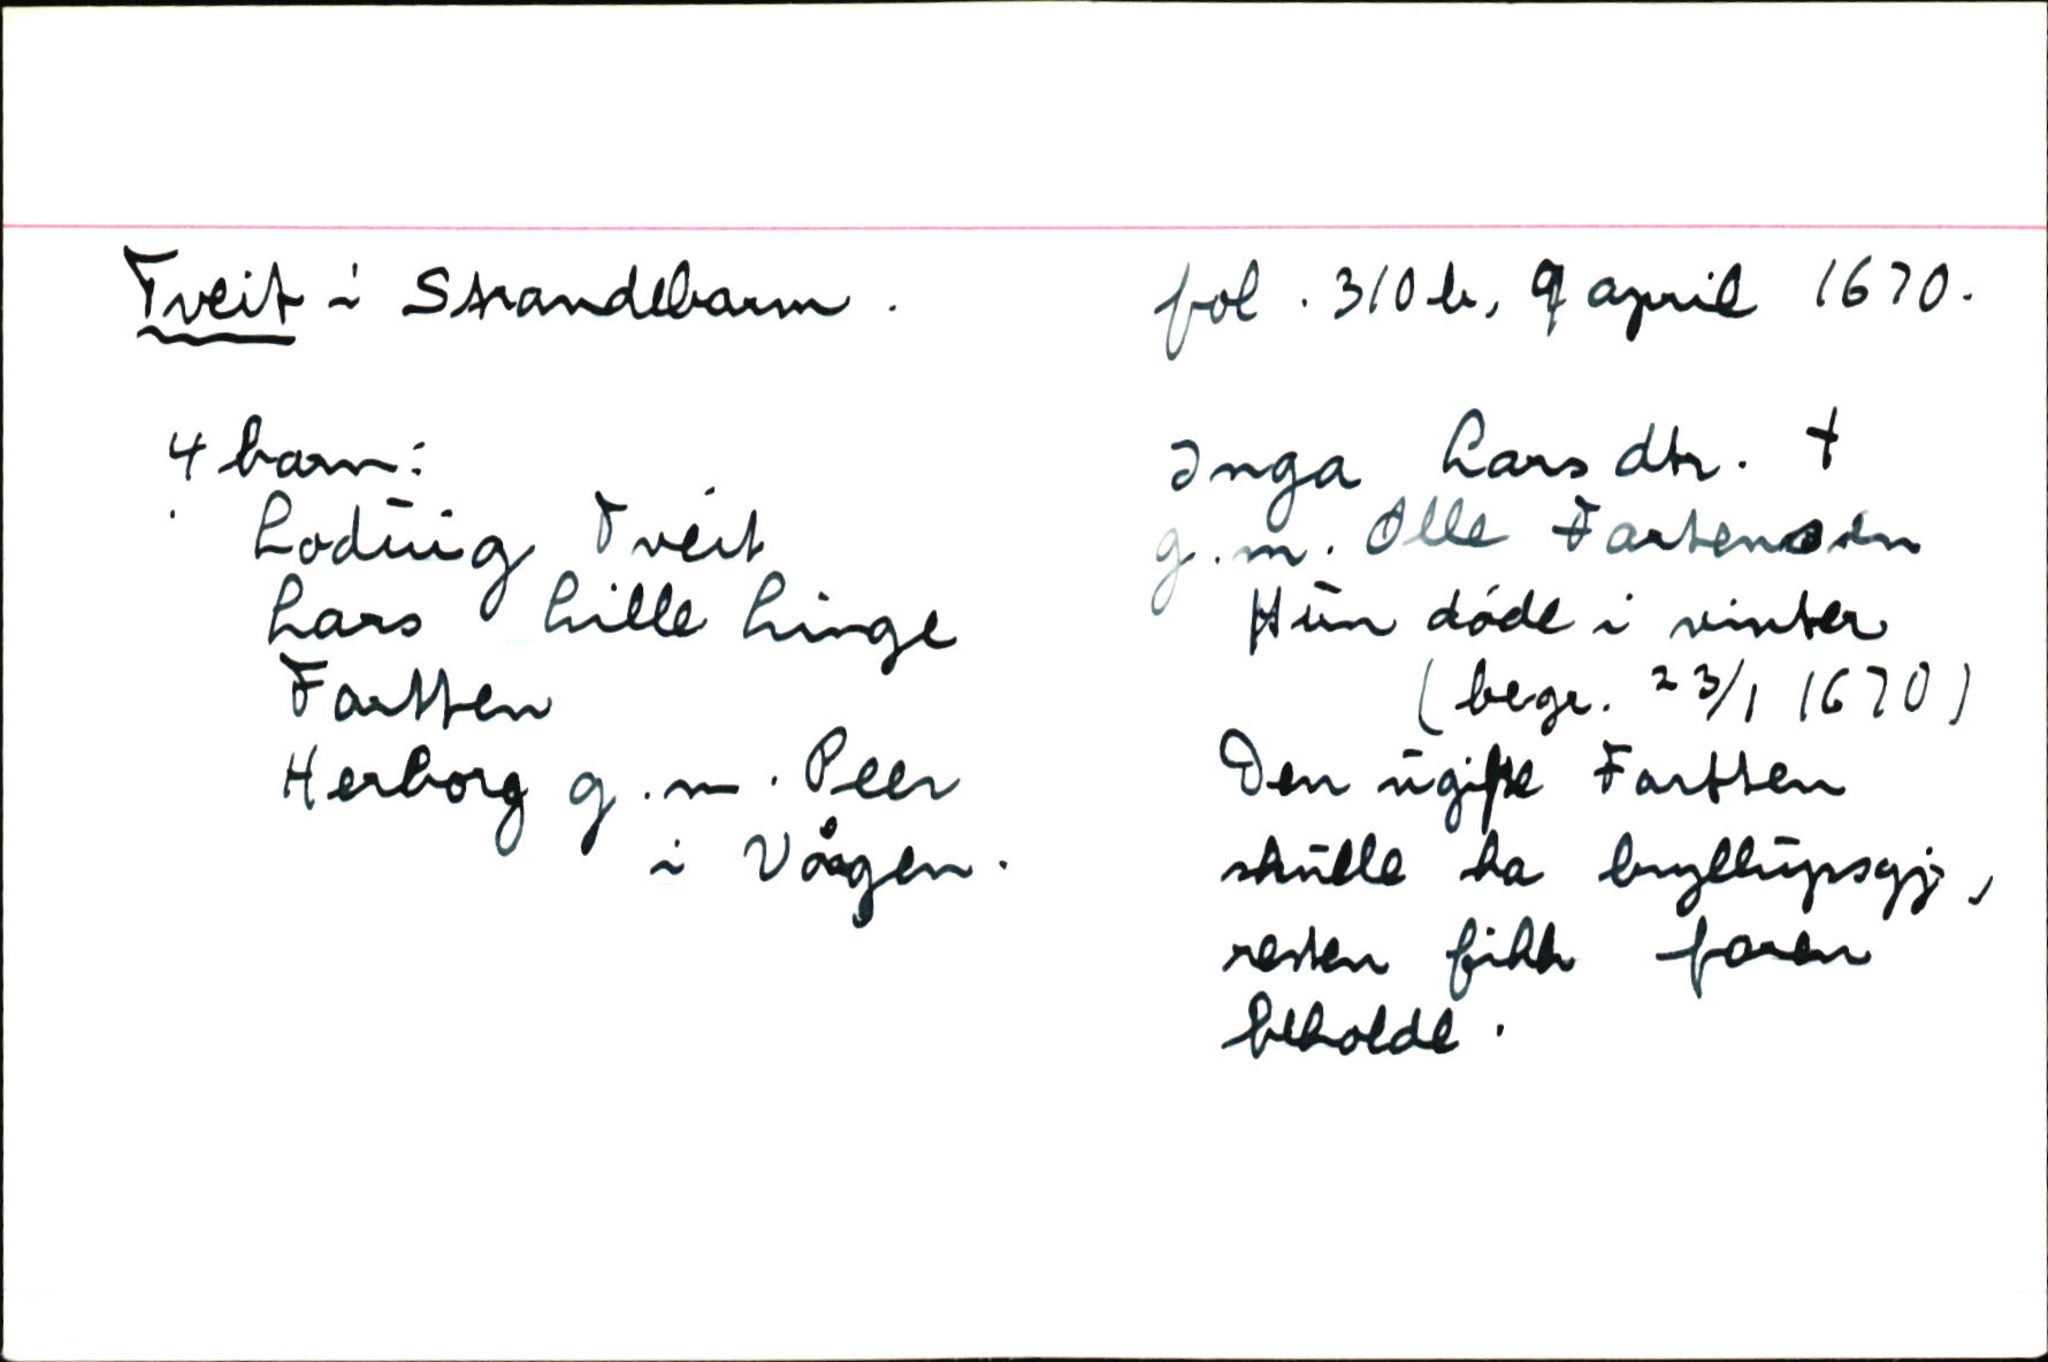 Tveit i Strandebarm.
fol. 310 b, 9 april 1670.
4 barn:
Lodūig Tveit
Lars Lille Linge
Fartten
Herborg g.m. Peer
i Vågen.
Inga Lars dtr. †
g.m. Olle Fartensøn
Hūn døde i vinter
(begr. 23/1 1670)
Den ūgifte Fartten
skūlle ha bryllūpsgj,
resten fikk faren
beholde.